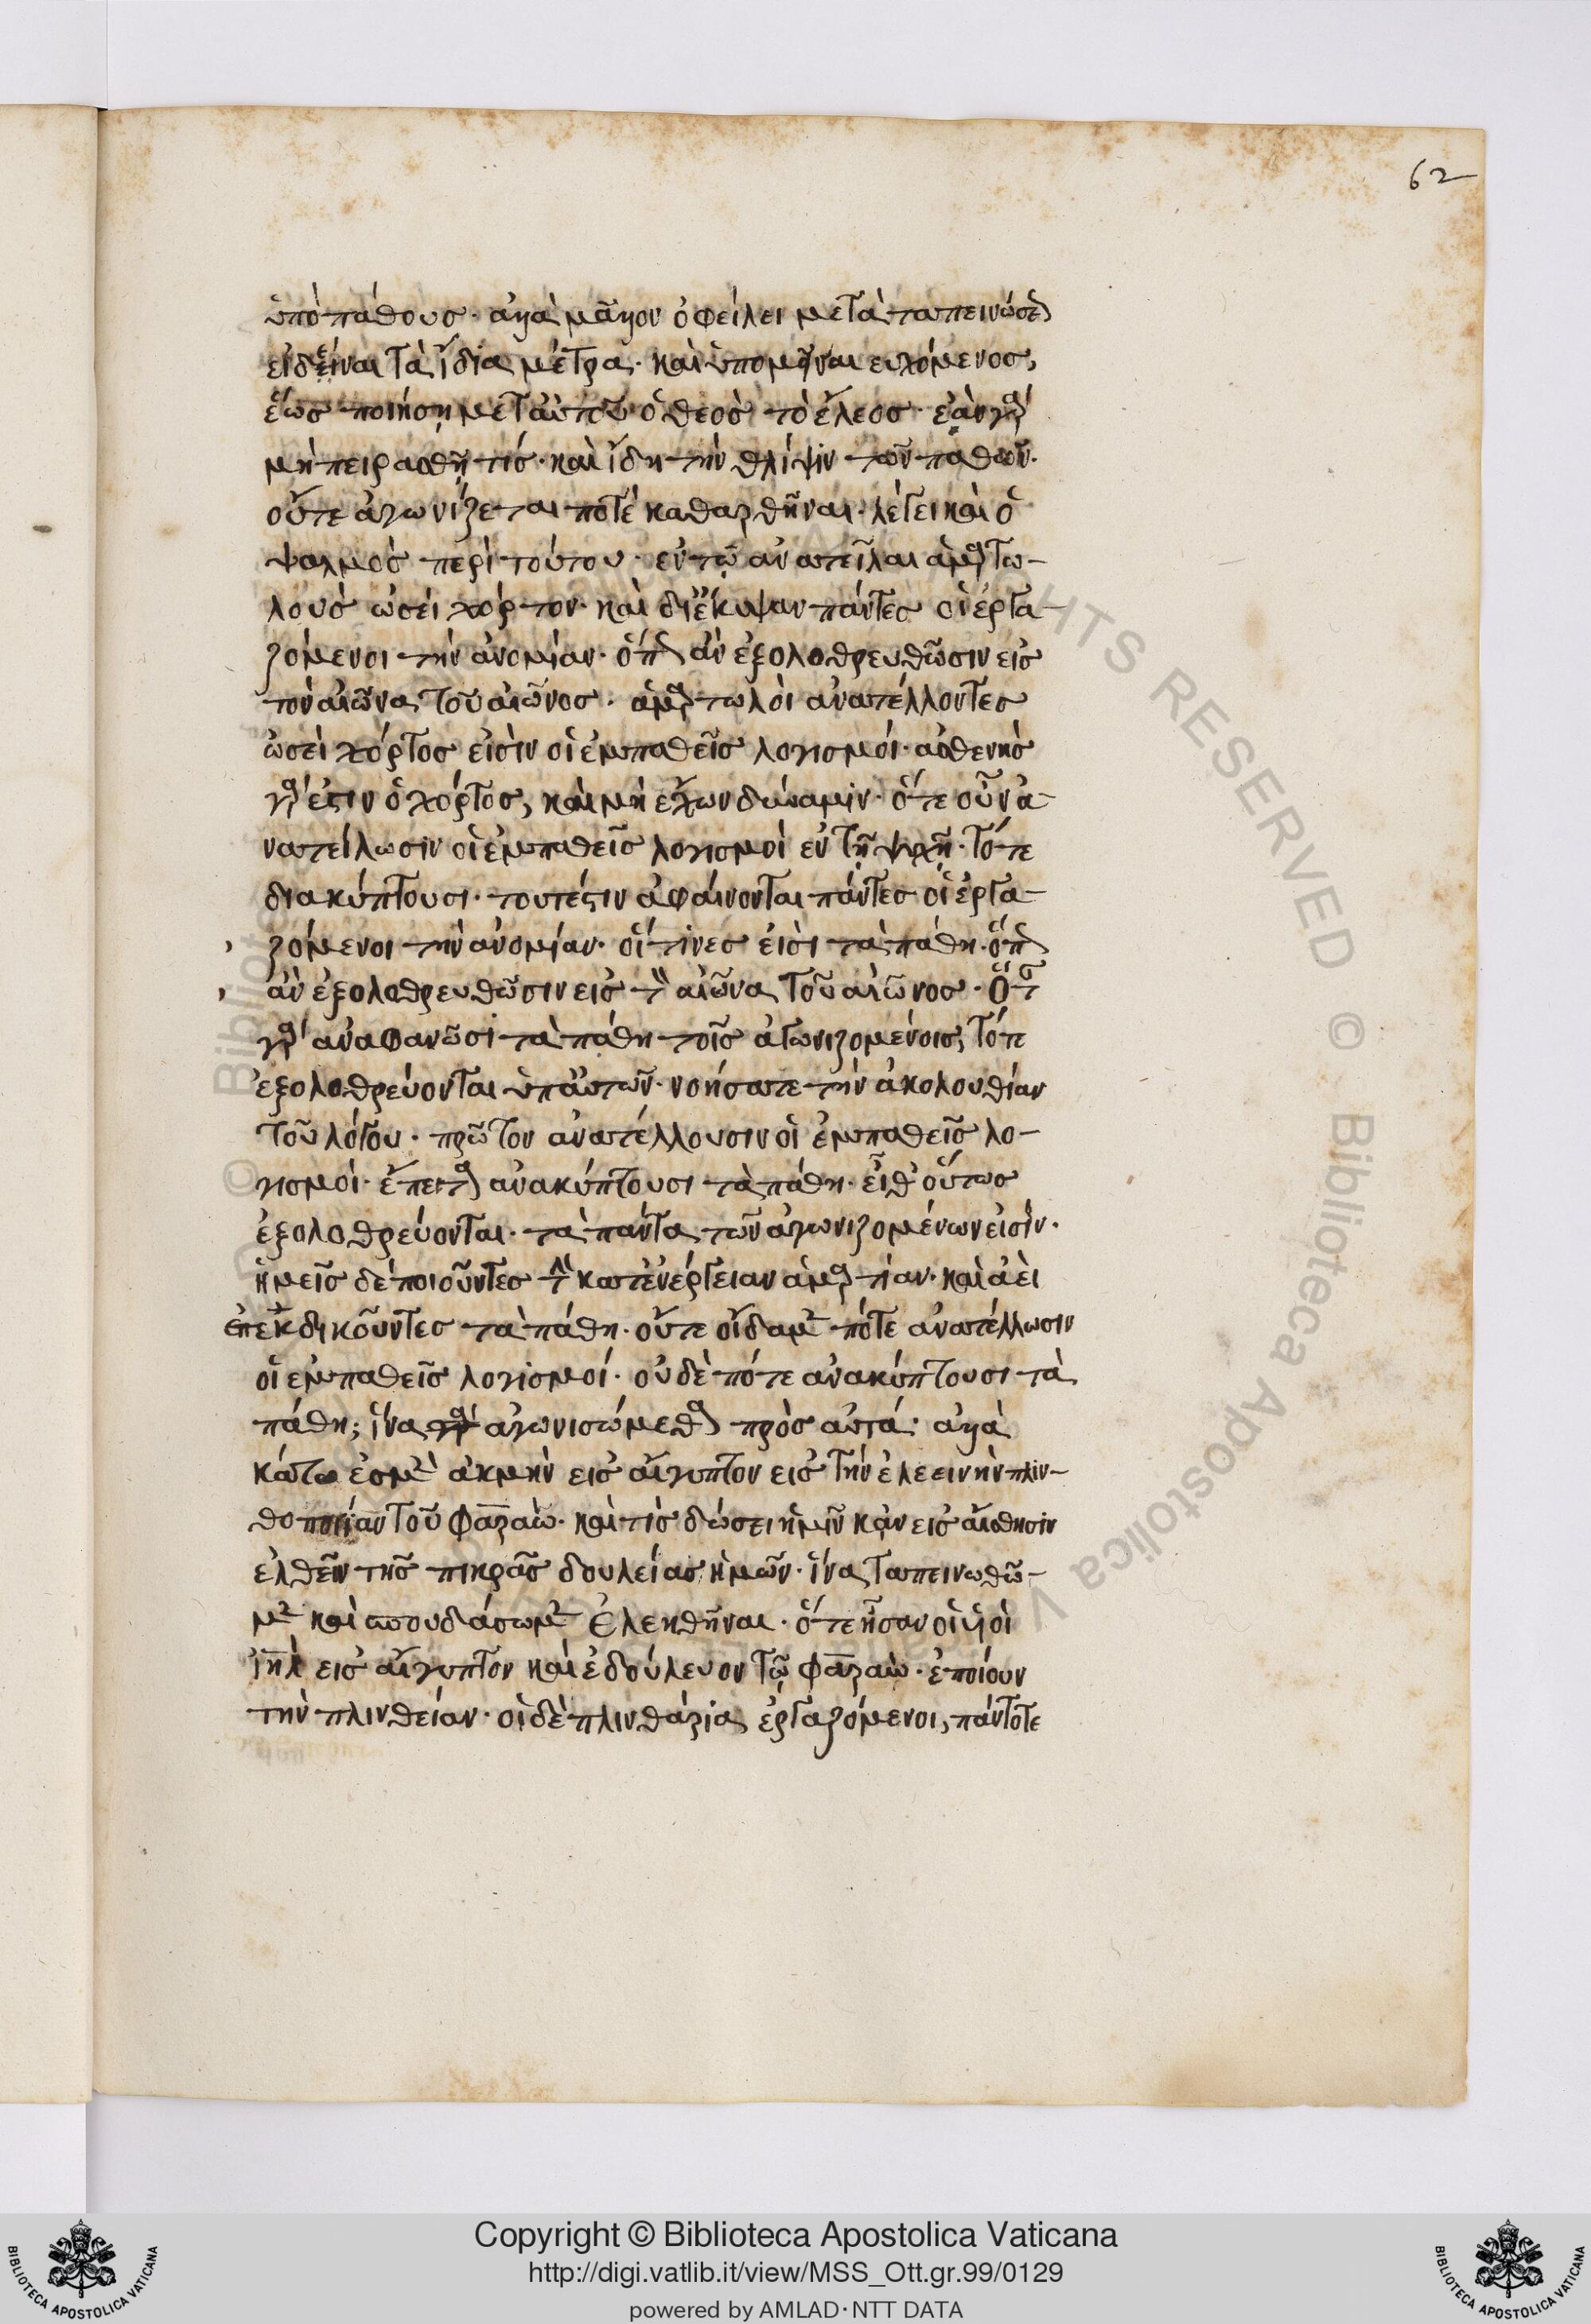 62
ὑπὸ πάθους· ἀλλὰ μᾶλλον ὀφείλει μετὰ ταπεινώσεως
εἰδέιναι τὰ ἴδια μέτρα· καὶ ὑπομεῖναι εὐχόμενος,
ἕως ποιήσῃ μετ' αὐτοῦ ὁ θεὸς τὸ ἔλεος· ἐὰν γὰρ
μὴ πειρασθῇ τίς· καὶ ἴδη τὴν θλίψιν τῶν παθῶν·
οὔτε ἀγωνίζεται ποτὲ καθαρθῆναι· λέγει καὶ ὁ
ψαλμὸς περὶ τούτου· ἐν τῷ ἀνατεῖλαι ἁμαρτω-
λοὺς ὡσεὶ χόρτον· καὶ διέκυψαν πάντες οἱ ἐργα-
ζόμενοι τὴν ἀνομίαν· ὅπως ἂν ἐξολοθρευθῶσιν εἰς
τὸν αἰῶνα τοῦ αἰῶνος· ἁμαρτωλοὶ ἀνατέλλοντες
ὡσεὶ χόρτος εἰσὶν οἱ ἐμπαθεῖς λογισμοί· ἀσθενὴς
γάρ ἐστιν ὁ χόρτος, καὶ μὴ ἔχων δύναμιν· ὅτε οὖν ἀ-
νατείλωσιν οἱ ἐμπαθεῖς λογισμοὶ ἐν τῇ ψυχῇ· τότε
διακύπτουσι· τουτέστιν ἀφαίνονται πάντες οἱ ἐργα-
ζόμενοι τὴν ἀνομίαν· οἵτινες εἰσὶ τὰ πάθη· ὅπως
ἂν ἐξολοθρευθῶσιν εἰς τὸν αἰῶνα τοῦ αἰῶνος· Ὅτε
γὰρ ἀναφανῶσι τὰ πάθη τοῖς ἀγωνιζομένοις, τότε
ἐξολοθρεύονται ὑπ' αὐτῶν· νοήσατε τὴν ἀκολουθίαν
τοῦ λόγου· πρῶτον ἀνατέλλουσιν οἱ ἐμπαθεῖς λο-
γισμοί· ἔπειτα ἀνακύπτουσι τὰ πάθη· εἶθ' οὕτως
ἐξολοθρεύονται· τὰ πάντα τῶν ἀγωνιζομένων εἰσίν·
ἡμεῖς δὲ ποιοῦντες τὴν κατ' ἐνέργειαν ἁμαρτίαν· καὶ ἀεὶ
ἐπεκδικοῦντες τὰ πάθη· οὔτε οἴδαμεν πότε ἀνατέλλωσιν
οἱ ἐμπαθεῖς λογισμοί· οὐδὲ πότε ἀνακύπτουσι τὰ
πάθη; ἵνα ἀγωνισώμεθα πρὸς αὐτά· ἀλλὰ
κάτω ἐσμὲν ἀκμὴν εἰς αἴγυπτον εἰς τὴν ἐλεεινὴν πλιν-
θοποιίαν τοῦ Φαραώ· καὶ τίς δώσει ἡμῖν κἂν εἰς αἴσθησιν
ἐλθεῖν τῆς πικρᾶς δουλείας ἡμῶν· ἵνα ταπεινωθῶ-
μεν καὶ σπουδάσωμεν ἐλεηθῆναι· ὅτε ἦσαν οἱ υἱοὶ
ἰηλ εἰς αἴγυπτον καὶ ἐδούλευον τῷ φαραώ· ἐποίουν
τὴν πλινθείαν· οἱ δὲ πλινθάρια ἐργαζόμενοι, πάντοτε
Copyright © Biblioteca Apostolica Vaticana
http://digi.vatlib.it/view/MSS_Ott.gr.99/0129
powered by AMLAD·NTT DATA